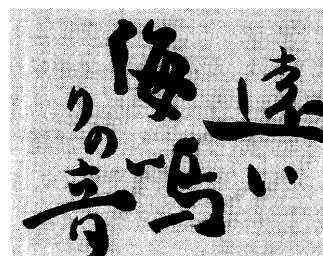 遠い
海鳴
りの音